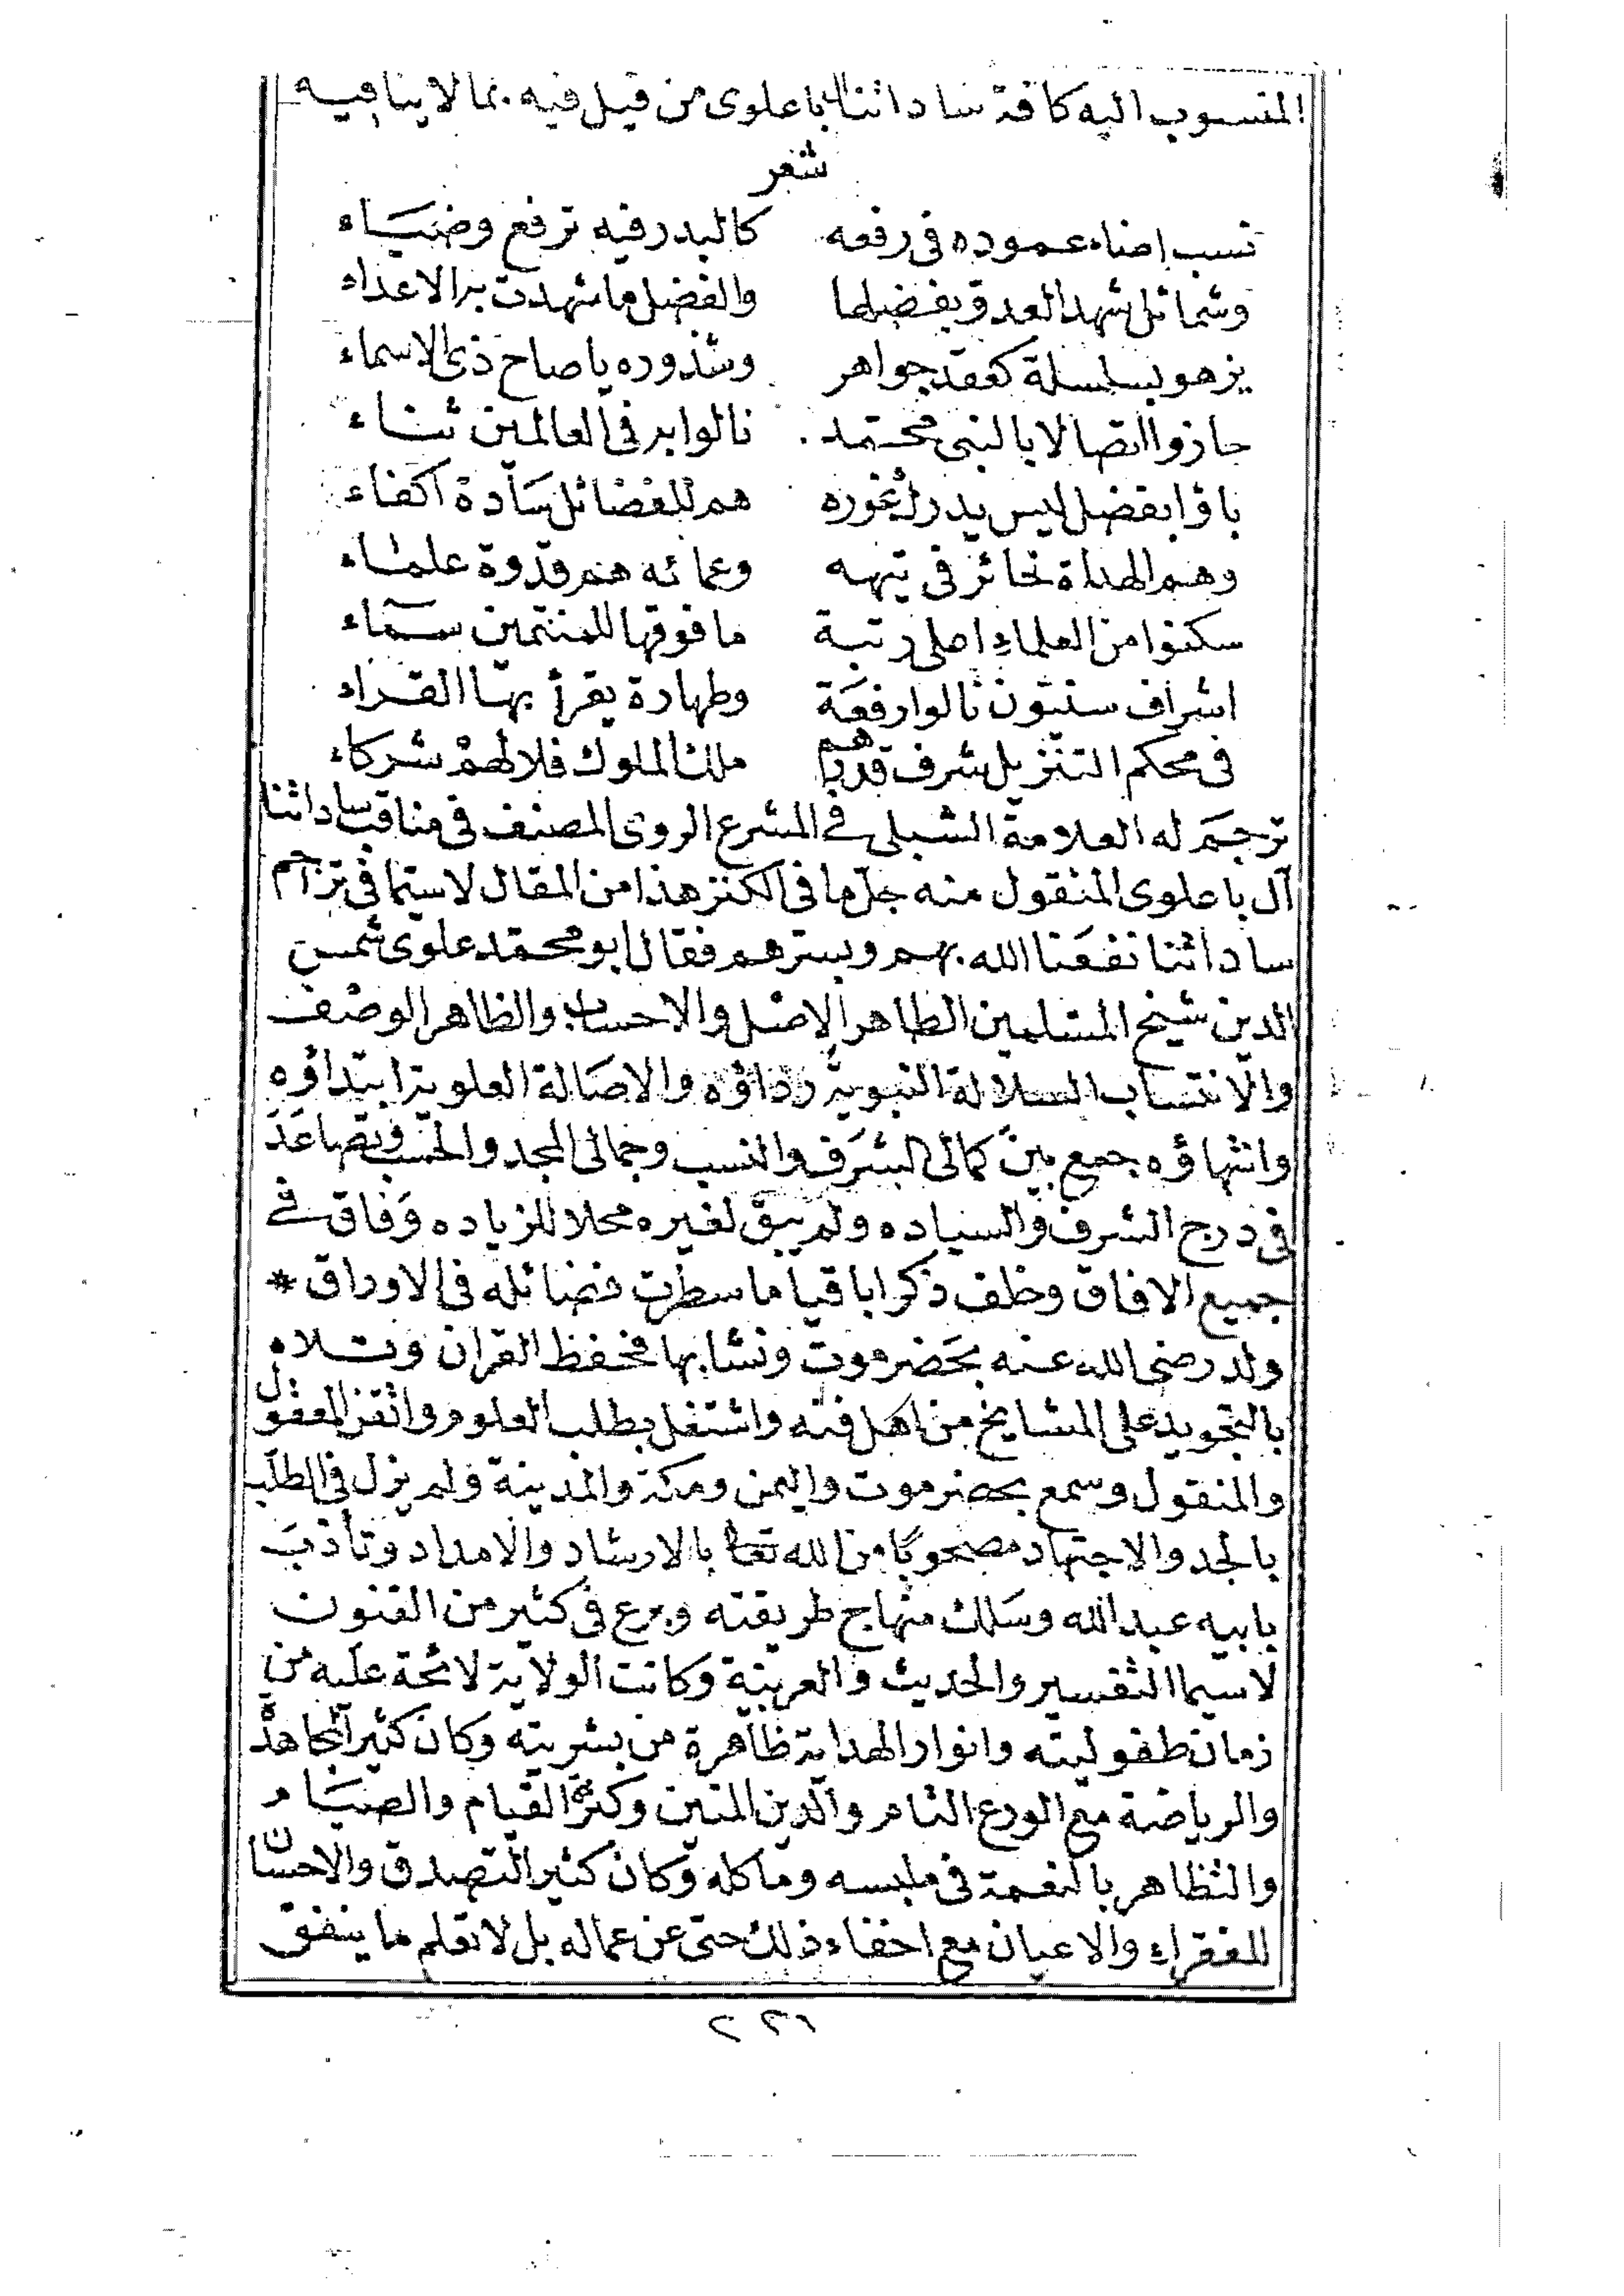 المنسوب اليه كافة ساداتنا باعلوى من قيل فيه بما لا ينافيه
شعر
نسب اضاء عموده فى رفعه كالبدر فيه ترفع وضياء
وشمائل شهد العدو بفضلها والفضل ما شهدت به الاعداء
يزهو بسلسلة كعقد جواهر وشذوره يا صاح ذى الاسماء
حازوا اتصالا بالنبى محمد نالوا به فى العالمين ثناء
باؤا بفضل ليس يدرك غوره هم للفضائل سادة اكفاء
وهم الهداة لحائز فى تيهه وعمائه هم قدوة علماء
سكنوا من العلماء اعلى رتبة ما فوقها للمنتمين سماء
اشراف سنيون نالوا رفعة وطهارة يقرأ بها القراء
فى محكم التنزيل شرف قدرهم ملك الملوك فلا لهم شركاء
ترجم له العلامة الشبلى فى المشرع الروى المصنف فى مناقب ساداتنا
آل باعلوى المنقول منه جل ما فى الكنز هذا من المقال لاسيما فى تراجم
ساداتنا نفعنا الله بهم وبسرهم فقال ابو محمد علوى شمس
الدين شيخ المسلمين الطاهر الاصل والاحساب والظاهر الوصف
والانتساب السلالة النبوية رداؤه والاصالة العلوية ابتداؤه
وانتهاؤه جمع بين كمالى الشرف والنسب وجمالى المجد والحسب وتصاعد
فى درج الشرف والسياده ولم يبق لغيره محلا للزياده وفاق فى
جميع الافاق وخلف ذكرا باقيا ما سطرت فضائله فى الاوراق *
ولد رضى الله عنه بحضرموت ونشا بها فحفظ القران وتلاه
بالتجويد على المشايخ من اهل فنه واشتغل بطلب العلوم واتقن المعقول
والمنقول وسمع بحضرموت واليمن ومكة والمدينة ولم يزل فى الطلب
بالجد والاجتهاد مصحوبا من الله تعا بالارشاد والامداد وتأدب
بابيه عبد الله وسلك منهاج طريقته وبرع فى كثير من الفنون
لاسيما التفسير والحديث والعربية وكانت الولاية لائحة عليه من
زمان طفوليته وانوار الهداية ظاهرة من بشريته وكان كثير المجاهدة
والرياضة مع الورع التام والدين المتين وكثرة القيام والصيام
والتظاهر بالنعمة فى ملبسه وماكله وكان كثير التصدق والاحسان
للفقراء والاعيان مع اخفاء ذلك حتى عن عماله بل لا تعلم ما ينفق
٢٣١